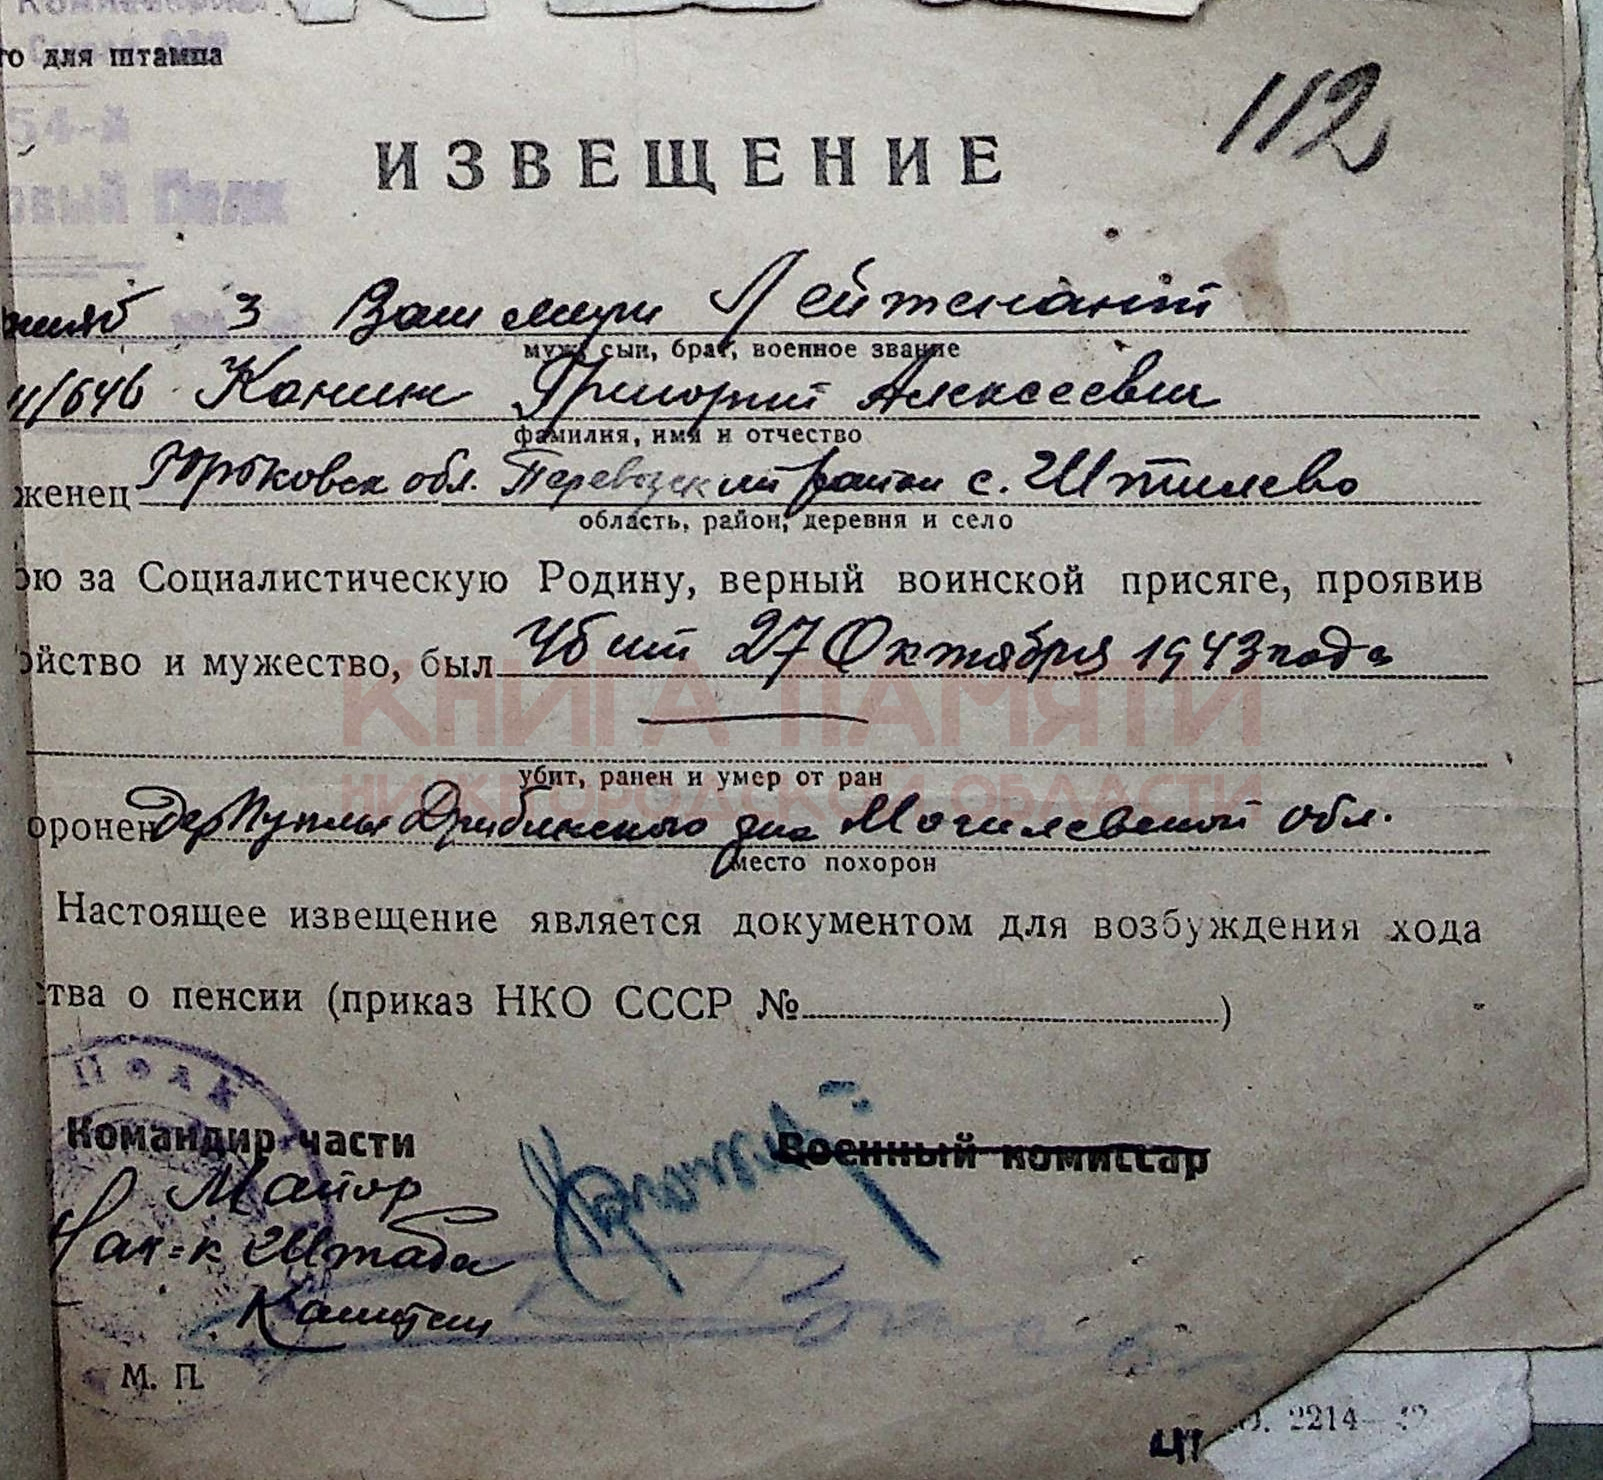 го для штампа
54-й
овый Полк
112
ИЗВЕЩЕНИЕ
3 Ваш муж Лейтенант
муж, сын, брат, военное звание
11/646 Канин Григорий Алексеевич
фамилия, имя и отчество
женец Горьковск обл. Перевозский район с. Штилево
область, район, деревня и село
ою за Социалистическую Родину, верный воинской присяге, проявив
ойство и мужество, был Убит 27 Октября 1943 года
КНИГА ПАМЯТИ
убит, ранен и умер от ран
НИЖЕГОРОДСКОЙ ОБЛАСТИ
оронен дер Пуплы Дрибинского р-на Могилевской обл.
место похорон
Настоящее извещение является документом для возбуждения хода
ства о пенсии (приказ НКО СССР № )
Полк
Командир части
Военный комиссар
Майор
Нач-к Штаба
Капитан
М. П.
2214